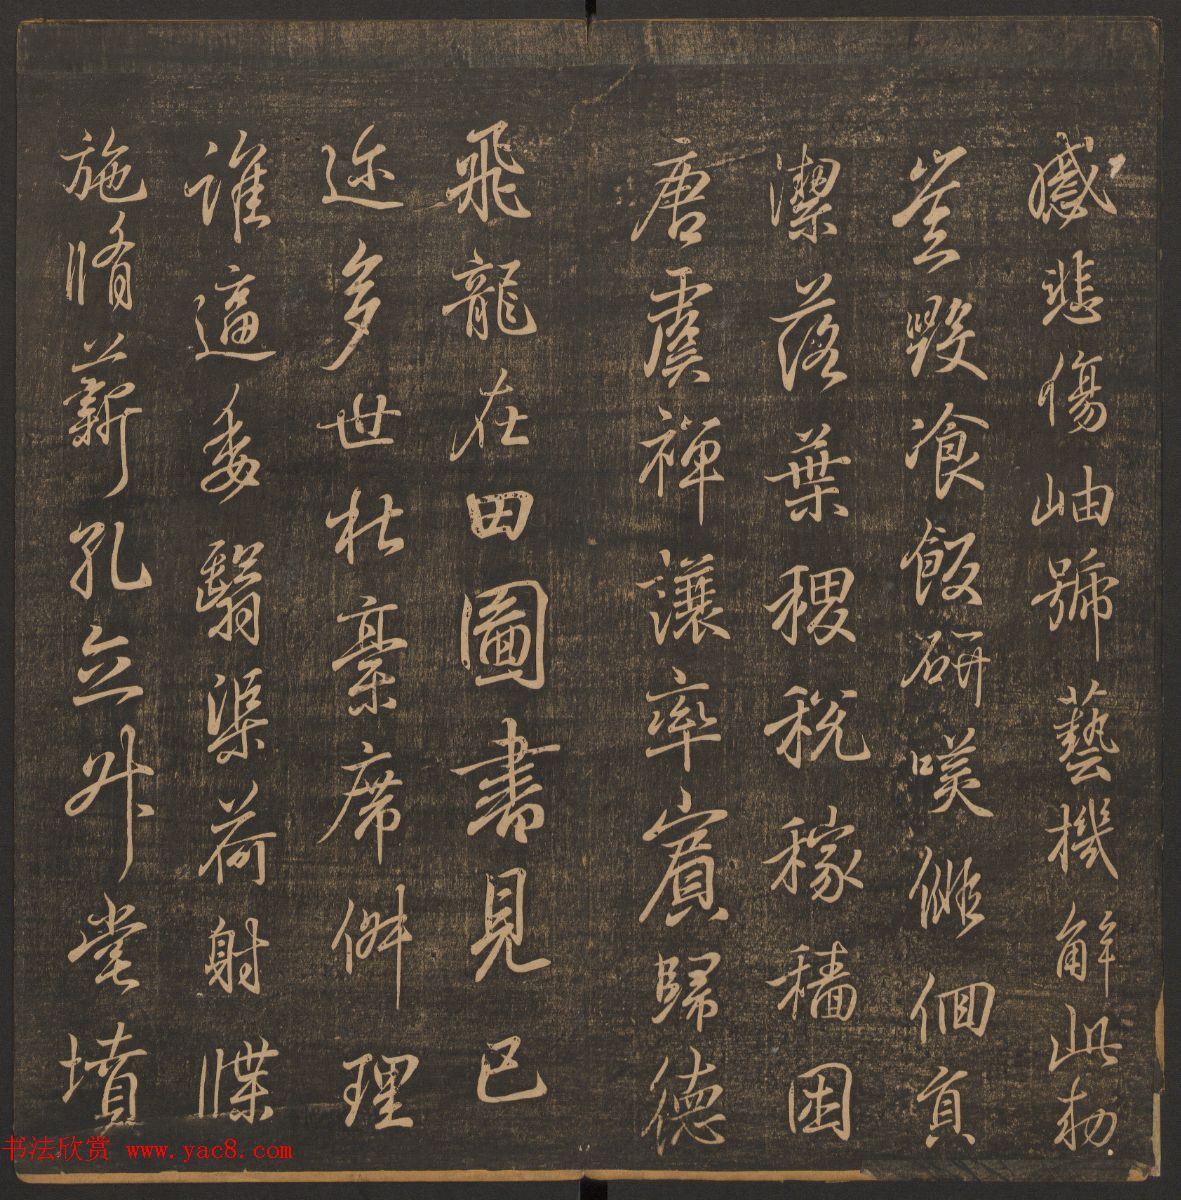 感悲傷岫號藝機解此物
登毀飡飯研嘆
潔落葉稷稅稼穡困
唐虞禪讓率賓歸德
飛龍在田圖書見已
迩多世杜稾席
理
誰逼委翳渠荷射牒
施脩薪孔立外堂墳
书法欣赏 www.yac8.com